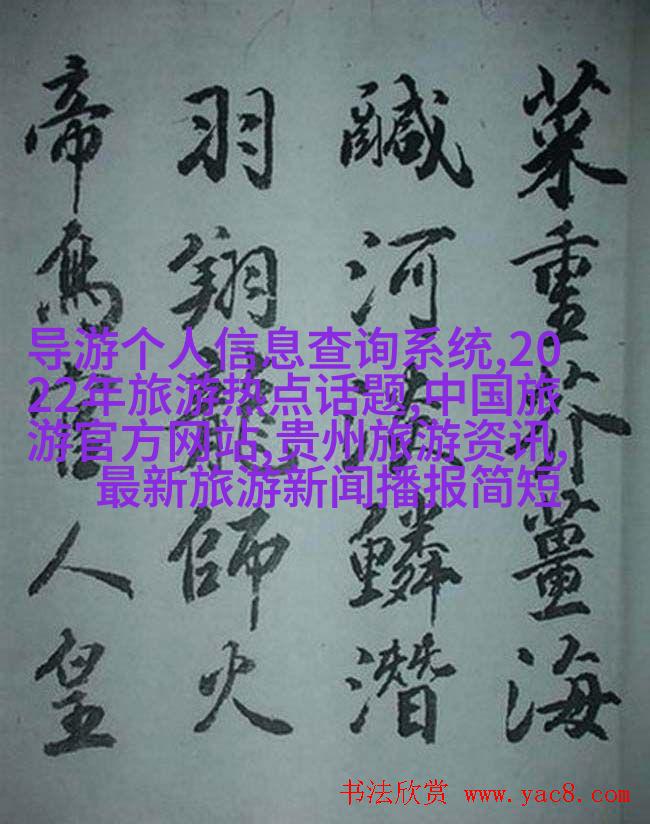 菜重芥薑海
鹹河淡鱗潛
羽翔龍師火
帝鳥官人皇
导游个人信息查询系统,20
22年旅游热点话题,中国旅
游官方网站,贵州旅游资讯,
最新旅游新闻播报简短
书法欣赏 www.yac8.com